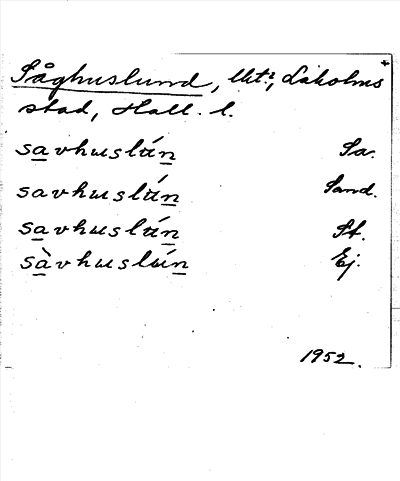 Såghuslund, lht?, Laholms +
stad, Hall. l.
savhuslún Sa.
savhuslún Sand.
savhuslún St.
sàvhuslún Ej.
1952.